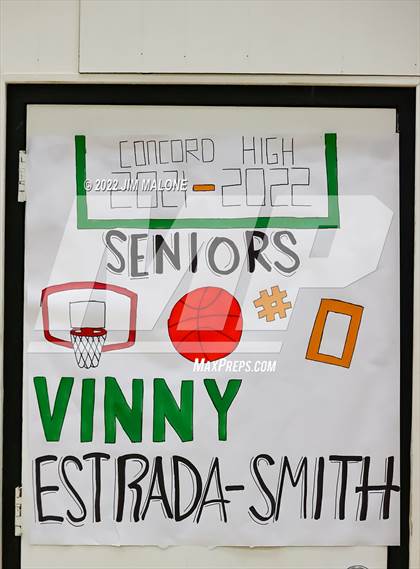 CONCORD HIGH
©2022 JIM MALONE
2021-2022
SENIORS
# 0
MAXPREPS.COM
VINNY
ESTRADA-SMITH